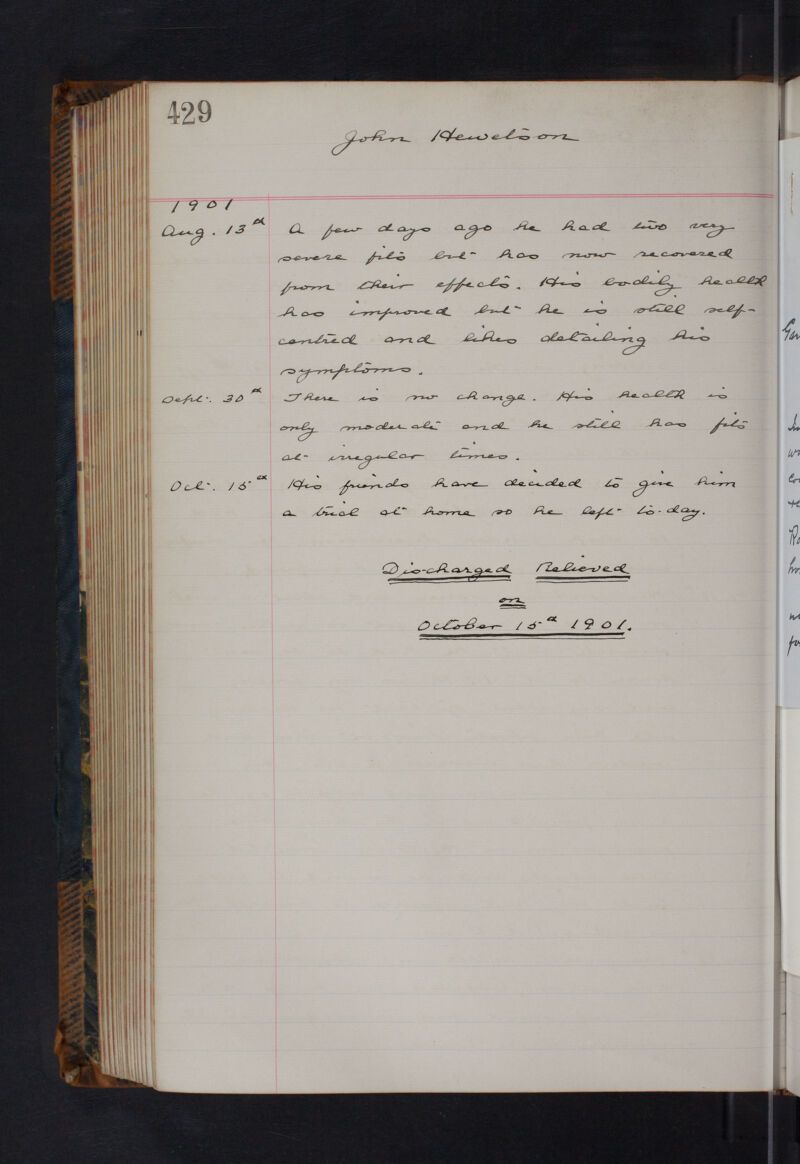 429
John Hewetson
1901
Aug. 13th A few days ago he had two very
severe fits but has now recovered
from their effects. His bodily health
has improved but he is still self-
centred and likes detailing his
symptoms.
Sept. 30th There is no change. His health is
only moderate and he still has fits
at irregular times.
Oct. 15th His friends have decided to give him
a trial at home so he left to-day.
Discharged Relieved
on
October 15th 1901.